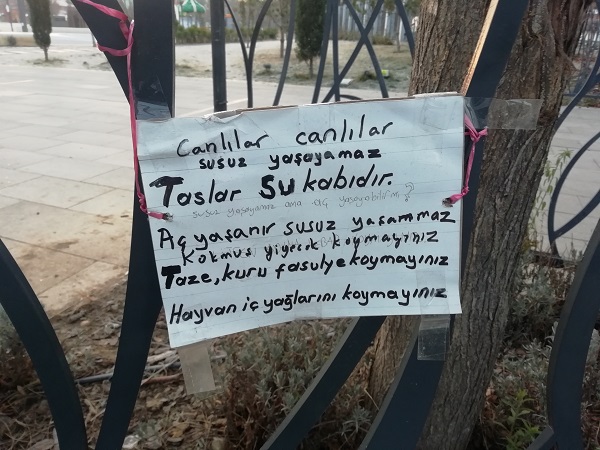 Canlılar canlılar
susuz yaşayamaz
Taslar Su kabıdır.
susuz yaşayamaz ama aç yaşayabilir mi?
Aç yaşanır susuz yaşanmaz
Kokmuş yiyecek koymayınız
Taze, kuru fasulye koymayınız
Hayvan iç yağlarını koymayınız